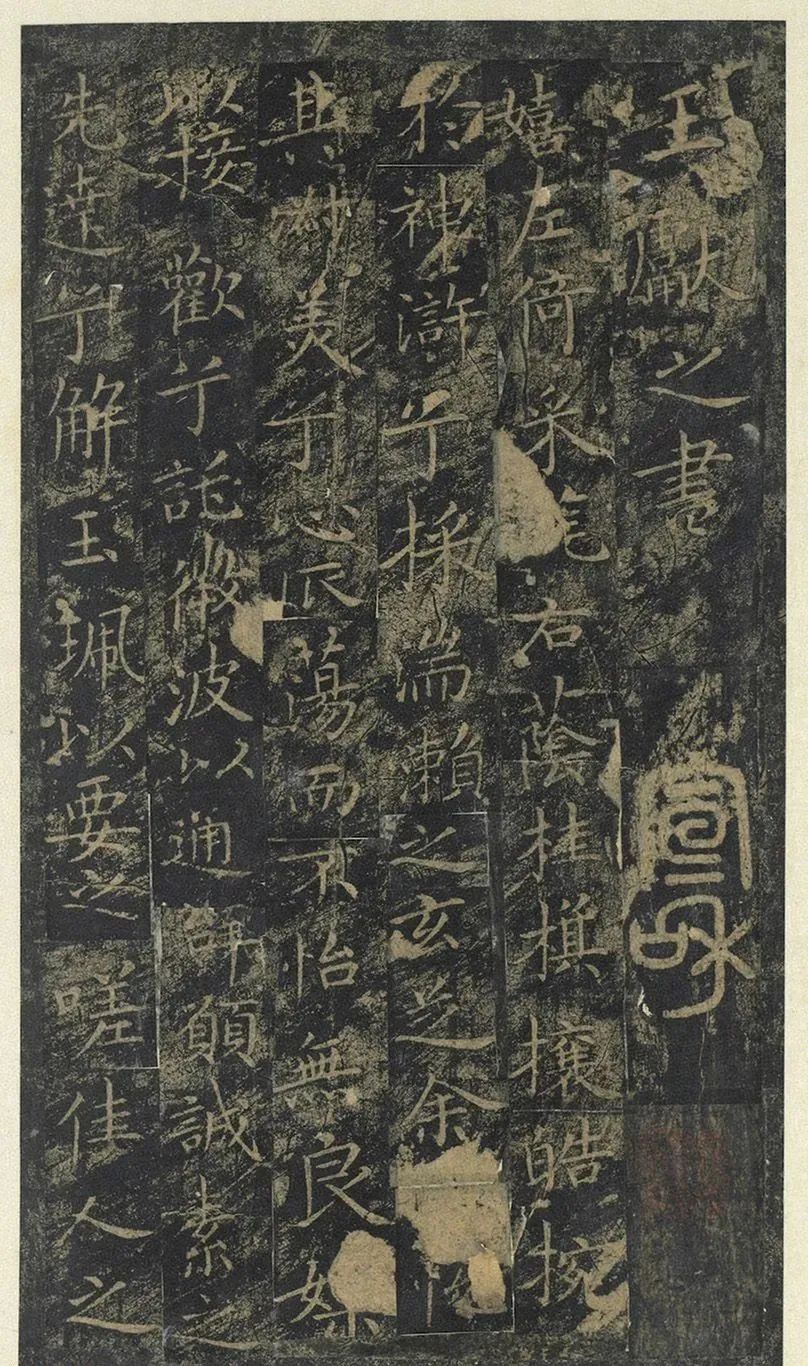 王獻之書 宣和
嬉左倚采旄右蔭桂旗攘皓捥
於神滸兮採湍瀨之玄芝余
其淑美兮心振蕩而不怡無良媒
以接歡兮託微波以通辭願誠素之
先達兮解玉珮以要之嗟佳人之